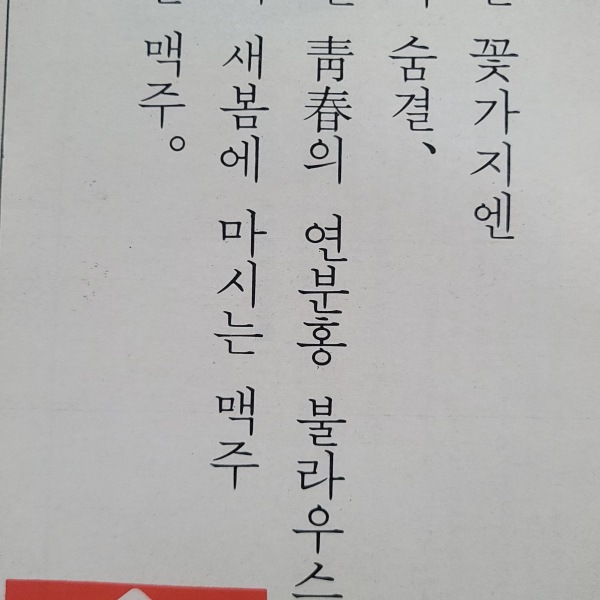 꽃가지엔
숨결、
靑春의 연분홍 불라우스
새봄에 마시는 맥주
맥주。